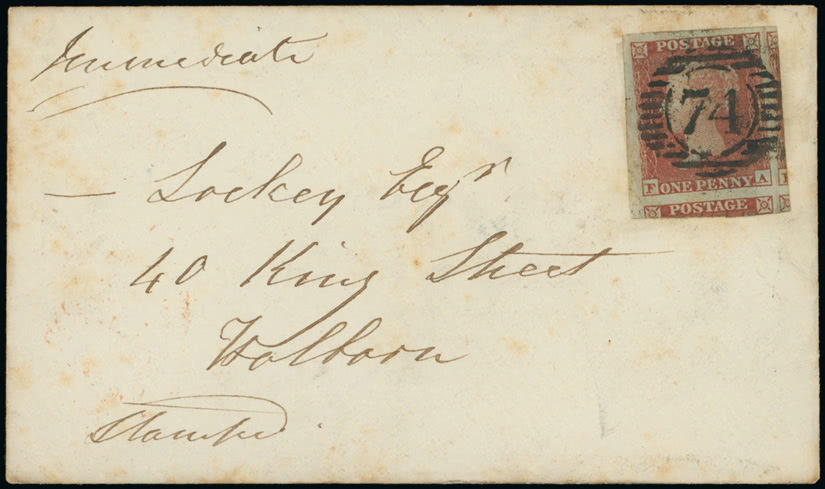 Immediate
POSTAGE
74
F ONE PENNY A
POSTAGE
— Lockey Esqr
40 King Street
Holborn